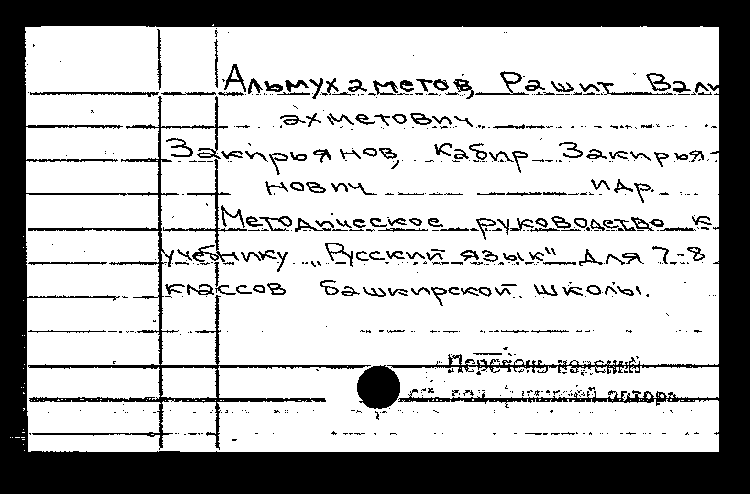 Альмухаметов, Рашит Вали
ахметович
Закирьянов, Кабир Закирья-
нович и др.
Методическое руководство к
учебнику „Русский язык" для 7-8
классов башкирской школы.
Перечень изданий
см. под фамилией автора